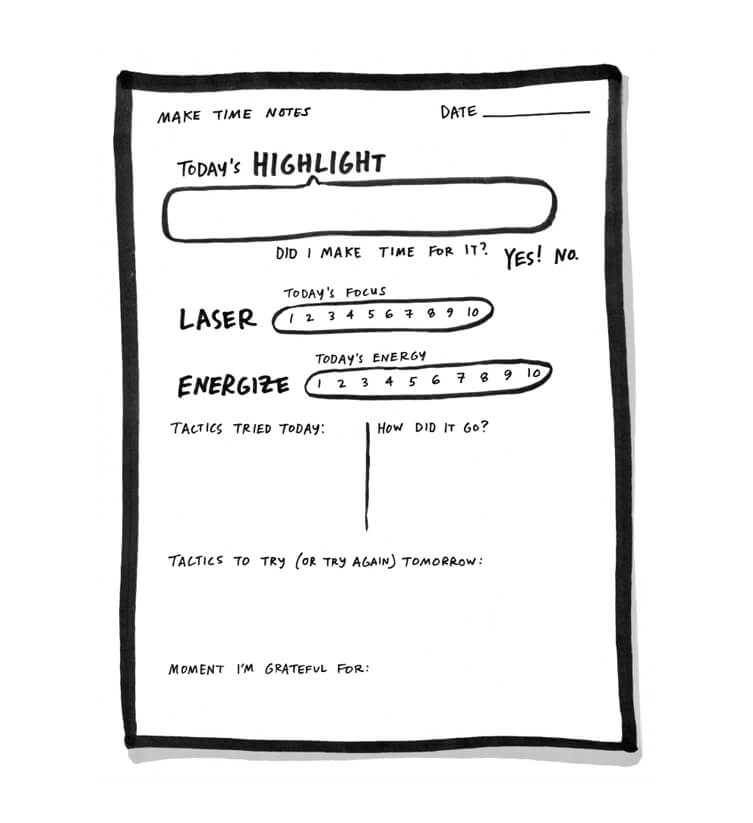 MAKE TIME NOTES DATE
TODAY'S HIGHLIGHT
DID I MAKE TIME FOR IT? YES! NO.
TODAY'S FOCUS
LASER 1 2 3 4 5 6 7 8 9 10
TODAY'S ENERGY
ENERGIZE 1 2 3 4 5 6 7 8 9 10
TACTICS TRIED TODAY: HOW DID IT GO?
TACTICS TO TRY (OR TRY AGAIN) TOMORROW:
MOMENT I'M GRATEFUL FOR: